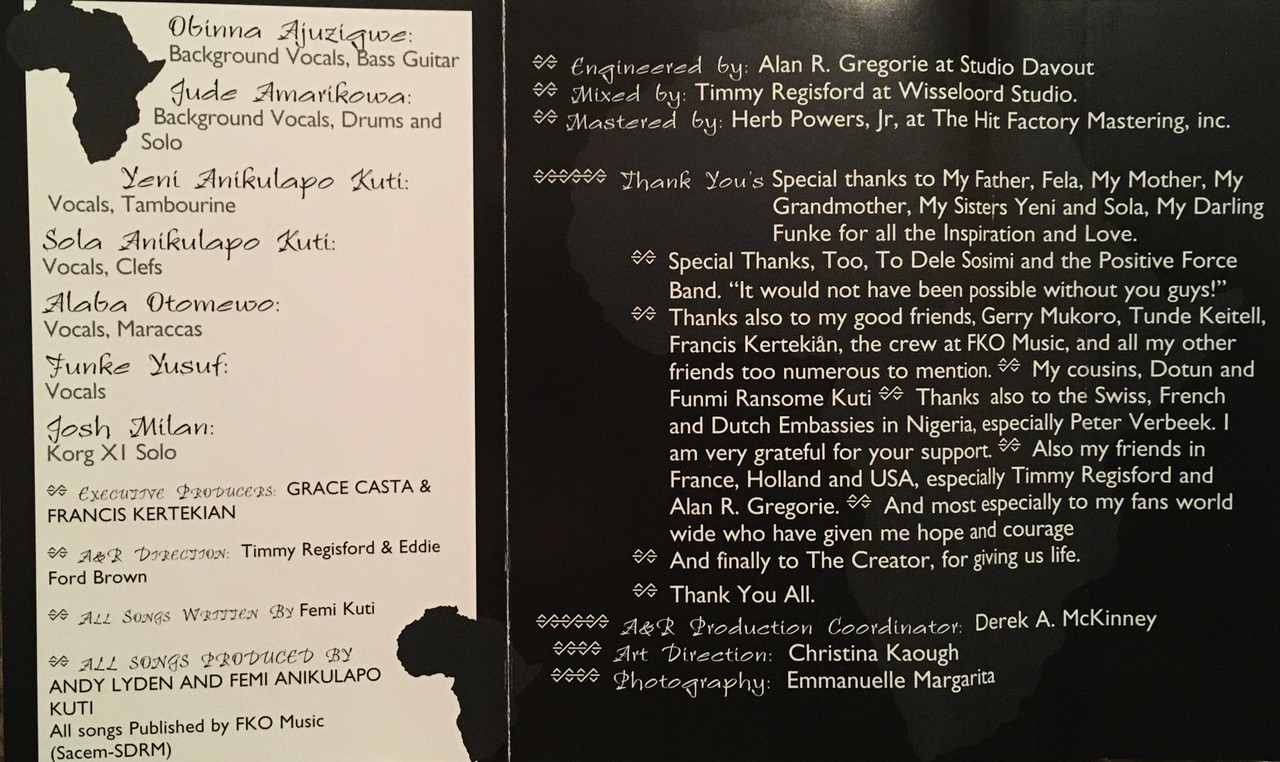 Obinna Ajuzigwe:
Background Vocals, Bass Guitar
Jude Amarikowa:
Background Vocals, Drums and
Solo
Yeni Anikulapo Kuti:
Vocals, Tambourine
Sola Anikulapo Kuti:
Vocals, Clefs
Alaba Otomewo:
Vocals, Maraccas
Funke Yusuf:
Vocals
Josh Milan:
Korg X1 Solo
Executive Producers: GRACE CASTA &
FRANCIS KERTEKIAN
A&R Direction: Timmy Regisford & Eddie
Ford Brown
All Songs Written By Femi Kuti
ALL SONGS PRODUCED BY
ANDY LYDEN AND FEMI ANIKULAPO
KUTI
All songs Published by FKO Music
(Sacem-SDRM)
Engineered by: Alan R. Gregorie at Studio Davout
Mixed by: Timmy Regisford at Wisseloord Studio.
Mastered by: Herb Powers, Jr, at The Hit Factory Mastering, inc.
Thank You's Special thanks to My Father, Fela, My Mother, My
Grandmother, My Sisters Yeni and Sola, My Darling
Funke for all the Inspiration and Love.
Special Thanks, Too, To Dele Sosimi and the Positive Force
Band. “It would not have been possible without you guys!”
Thanks also to my good friends, Gerry Mukoro, Tunde Keitell,
Francis Kertekiån, the crew at FKO Music, and all my other
friends too numerous to mention. My cousins, Dotun and
Funmi Ransome Kuti Thanks also to the Swiss, French
and Dutch Embassies in Nigeria, especially Peter Verbeek. I
am very grateful for your support. Also my friends in
France, Holland and USA, especially Timmy Regisford and
Alan R. Gregorie. And most especially to my fans world
wide who have given me hope and courage
And finally to The Creator, for giving us life.
Thank You All.
A&R Production Coordinator: Derek A. McKinney
Art Direction: Christina Kaough
Photography: Emmanuelle Margarita